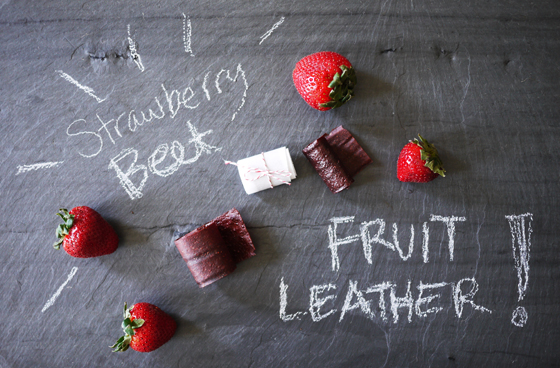 Strawberry
Beet
FRUIT
LEATHER!